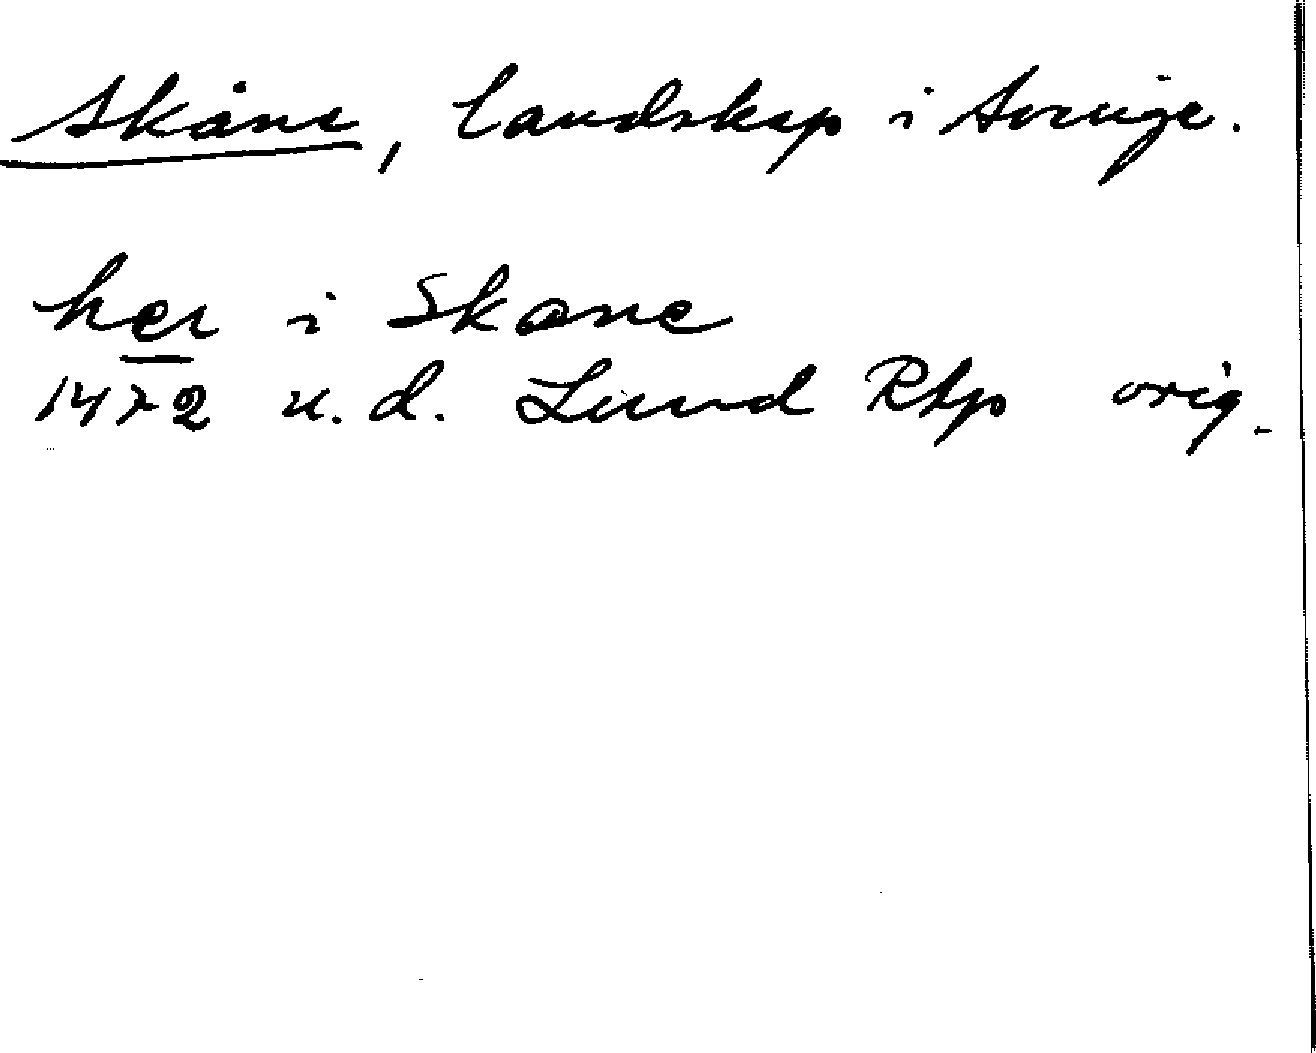 Skåne, landskap i Sverige.
her i Skane
1472 u.d. Lund Rtp orig.